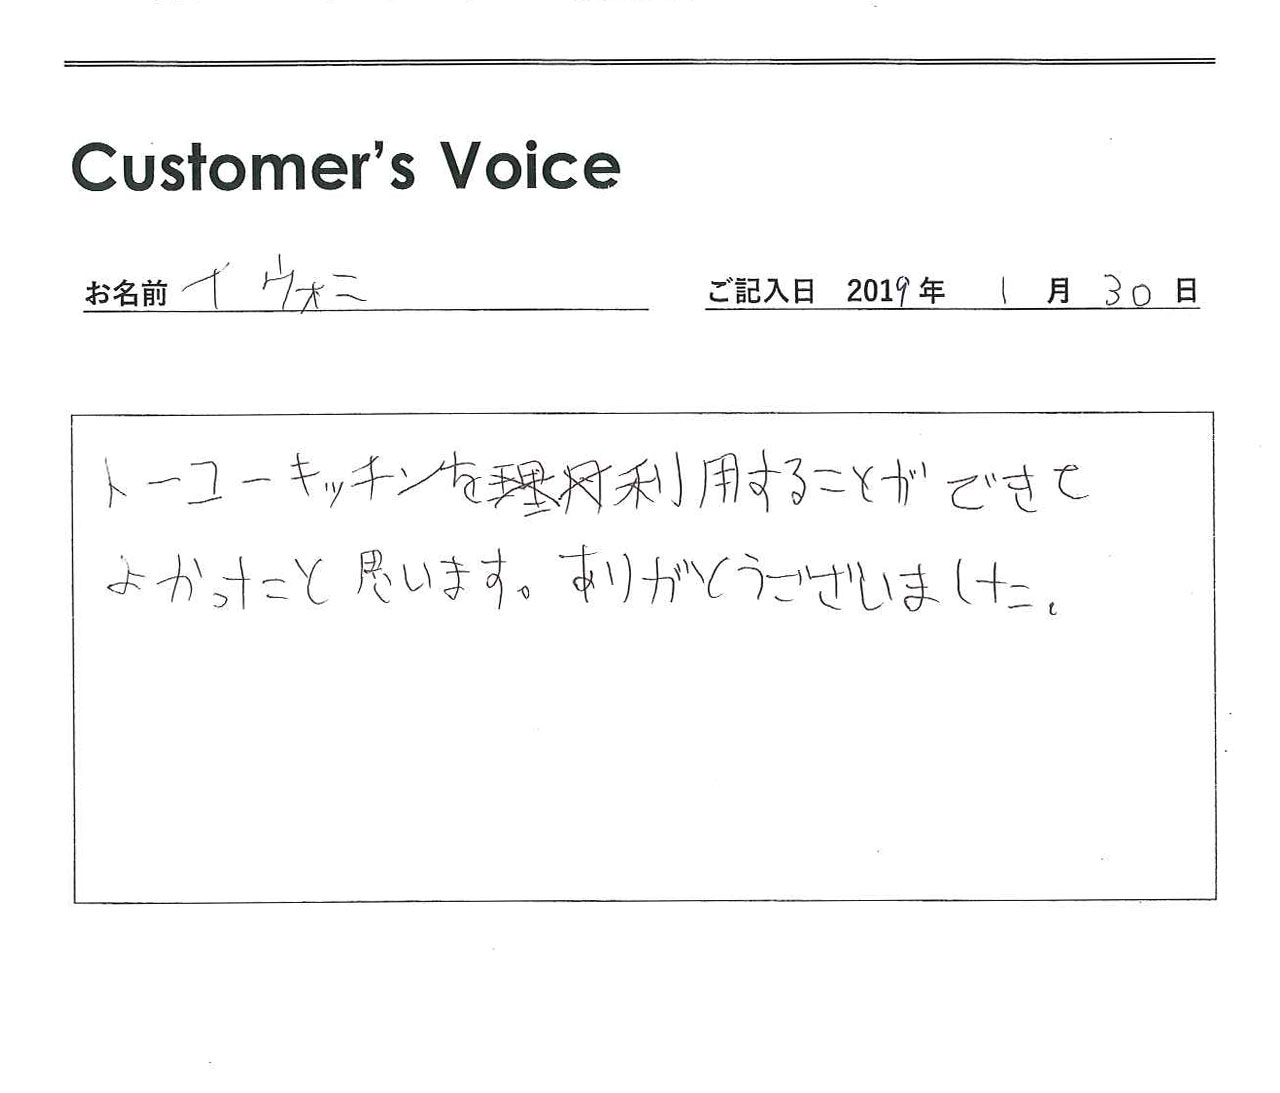 Customer's Voice
お名前 イ ウォニ
ご記入日 2019年 1月 30日
トーコーキッチンを利用することができて
よかったこと思います。ありがとうございました。